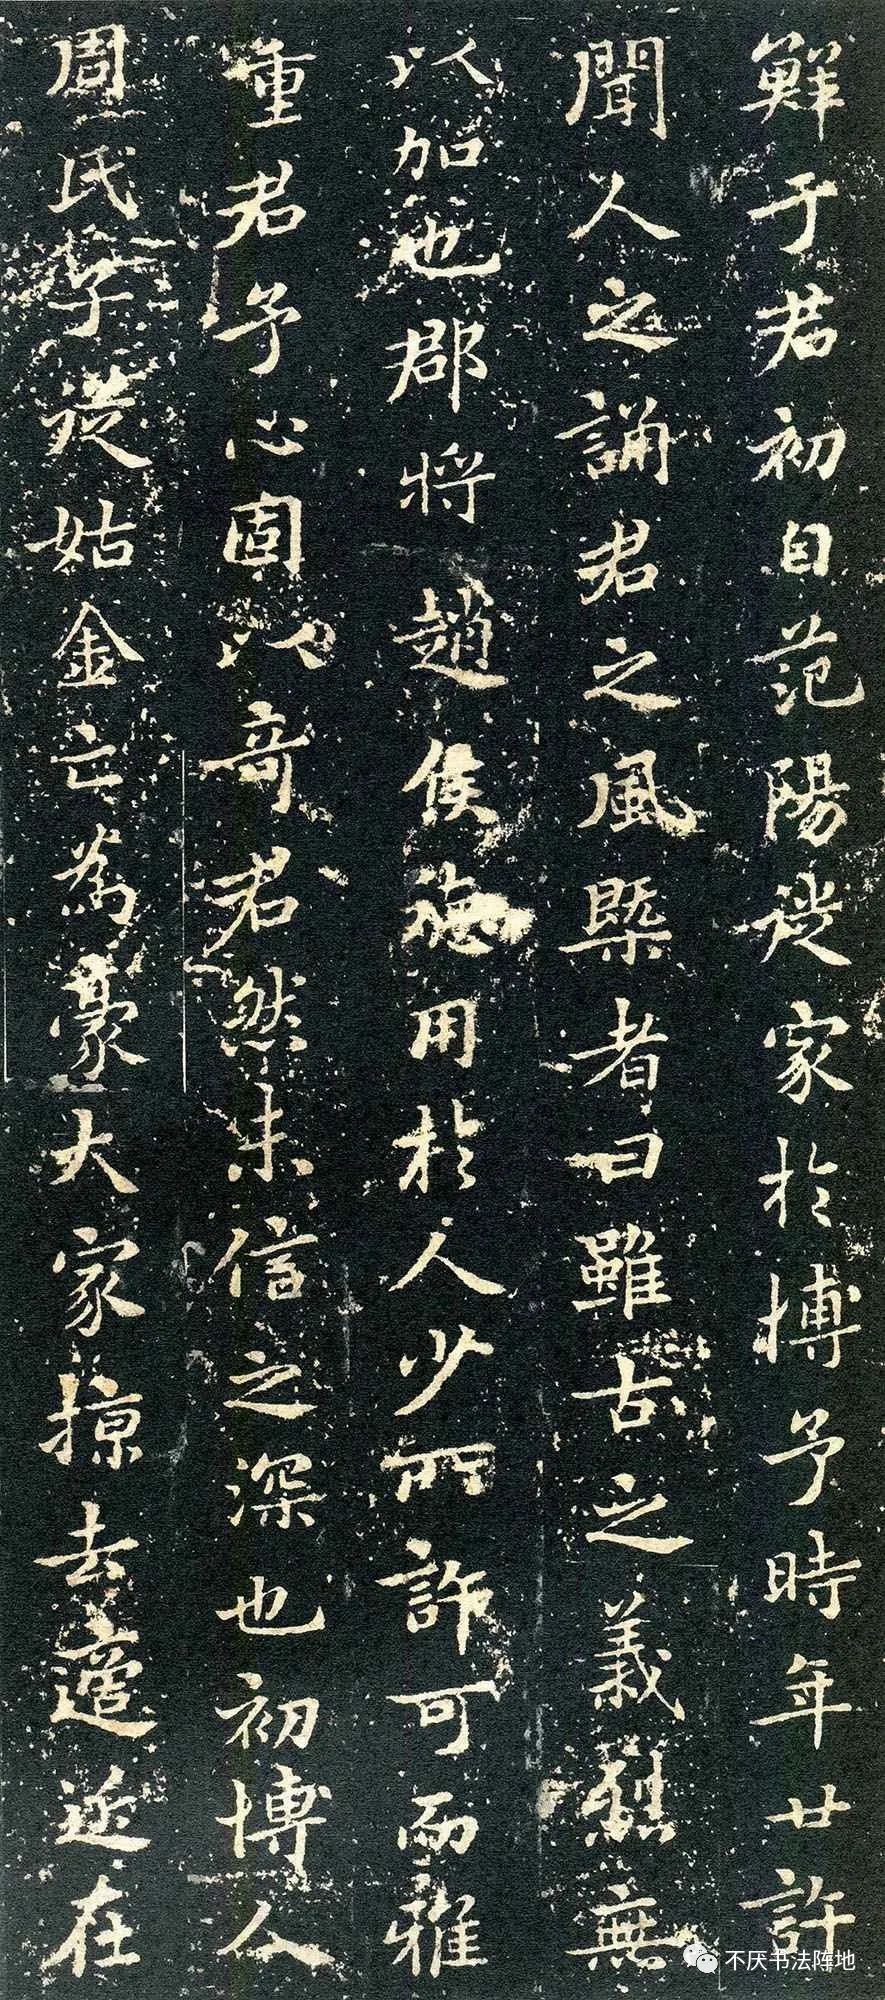 鮮于君初自范陽徙家於博予時年廿許
聞人之誦君之風槩者曰雖古之義烈無
以加也郡将趙侯德用於人少所許可而雅
重君予心固以奇君然未信之深也初博人
周氏子從姑金亡為豪大家掠去適近在
不厌书法阵地